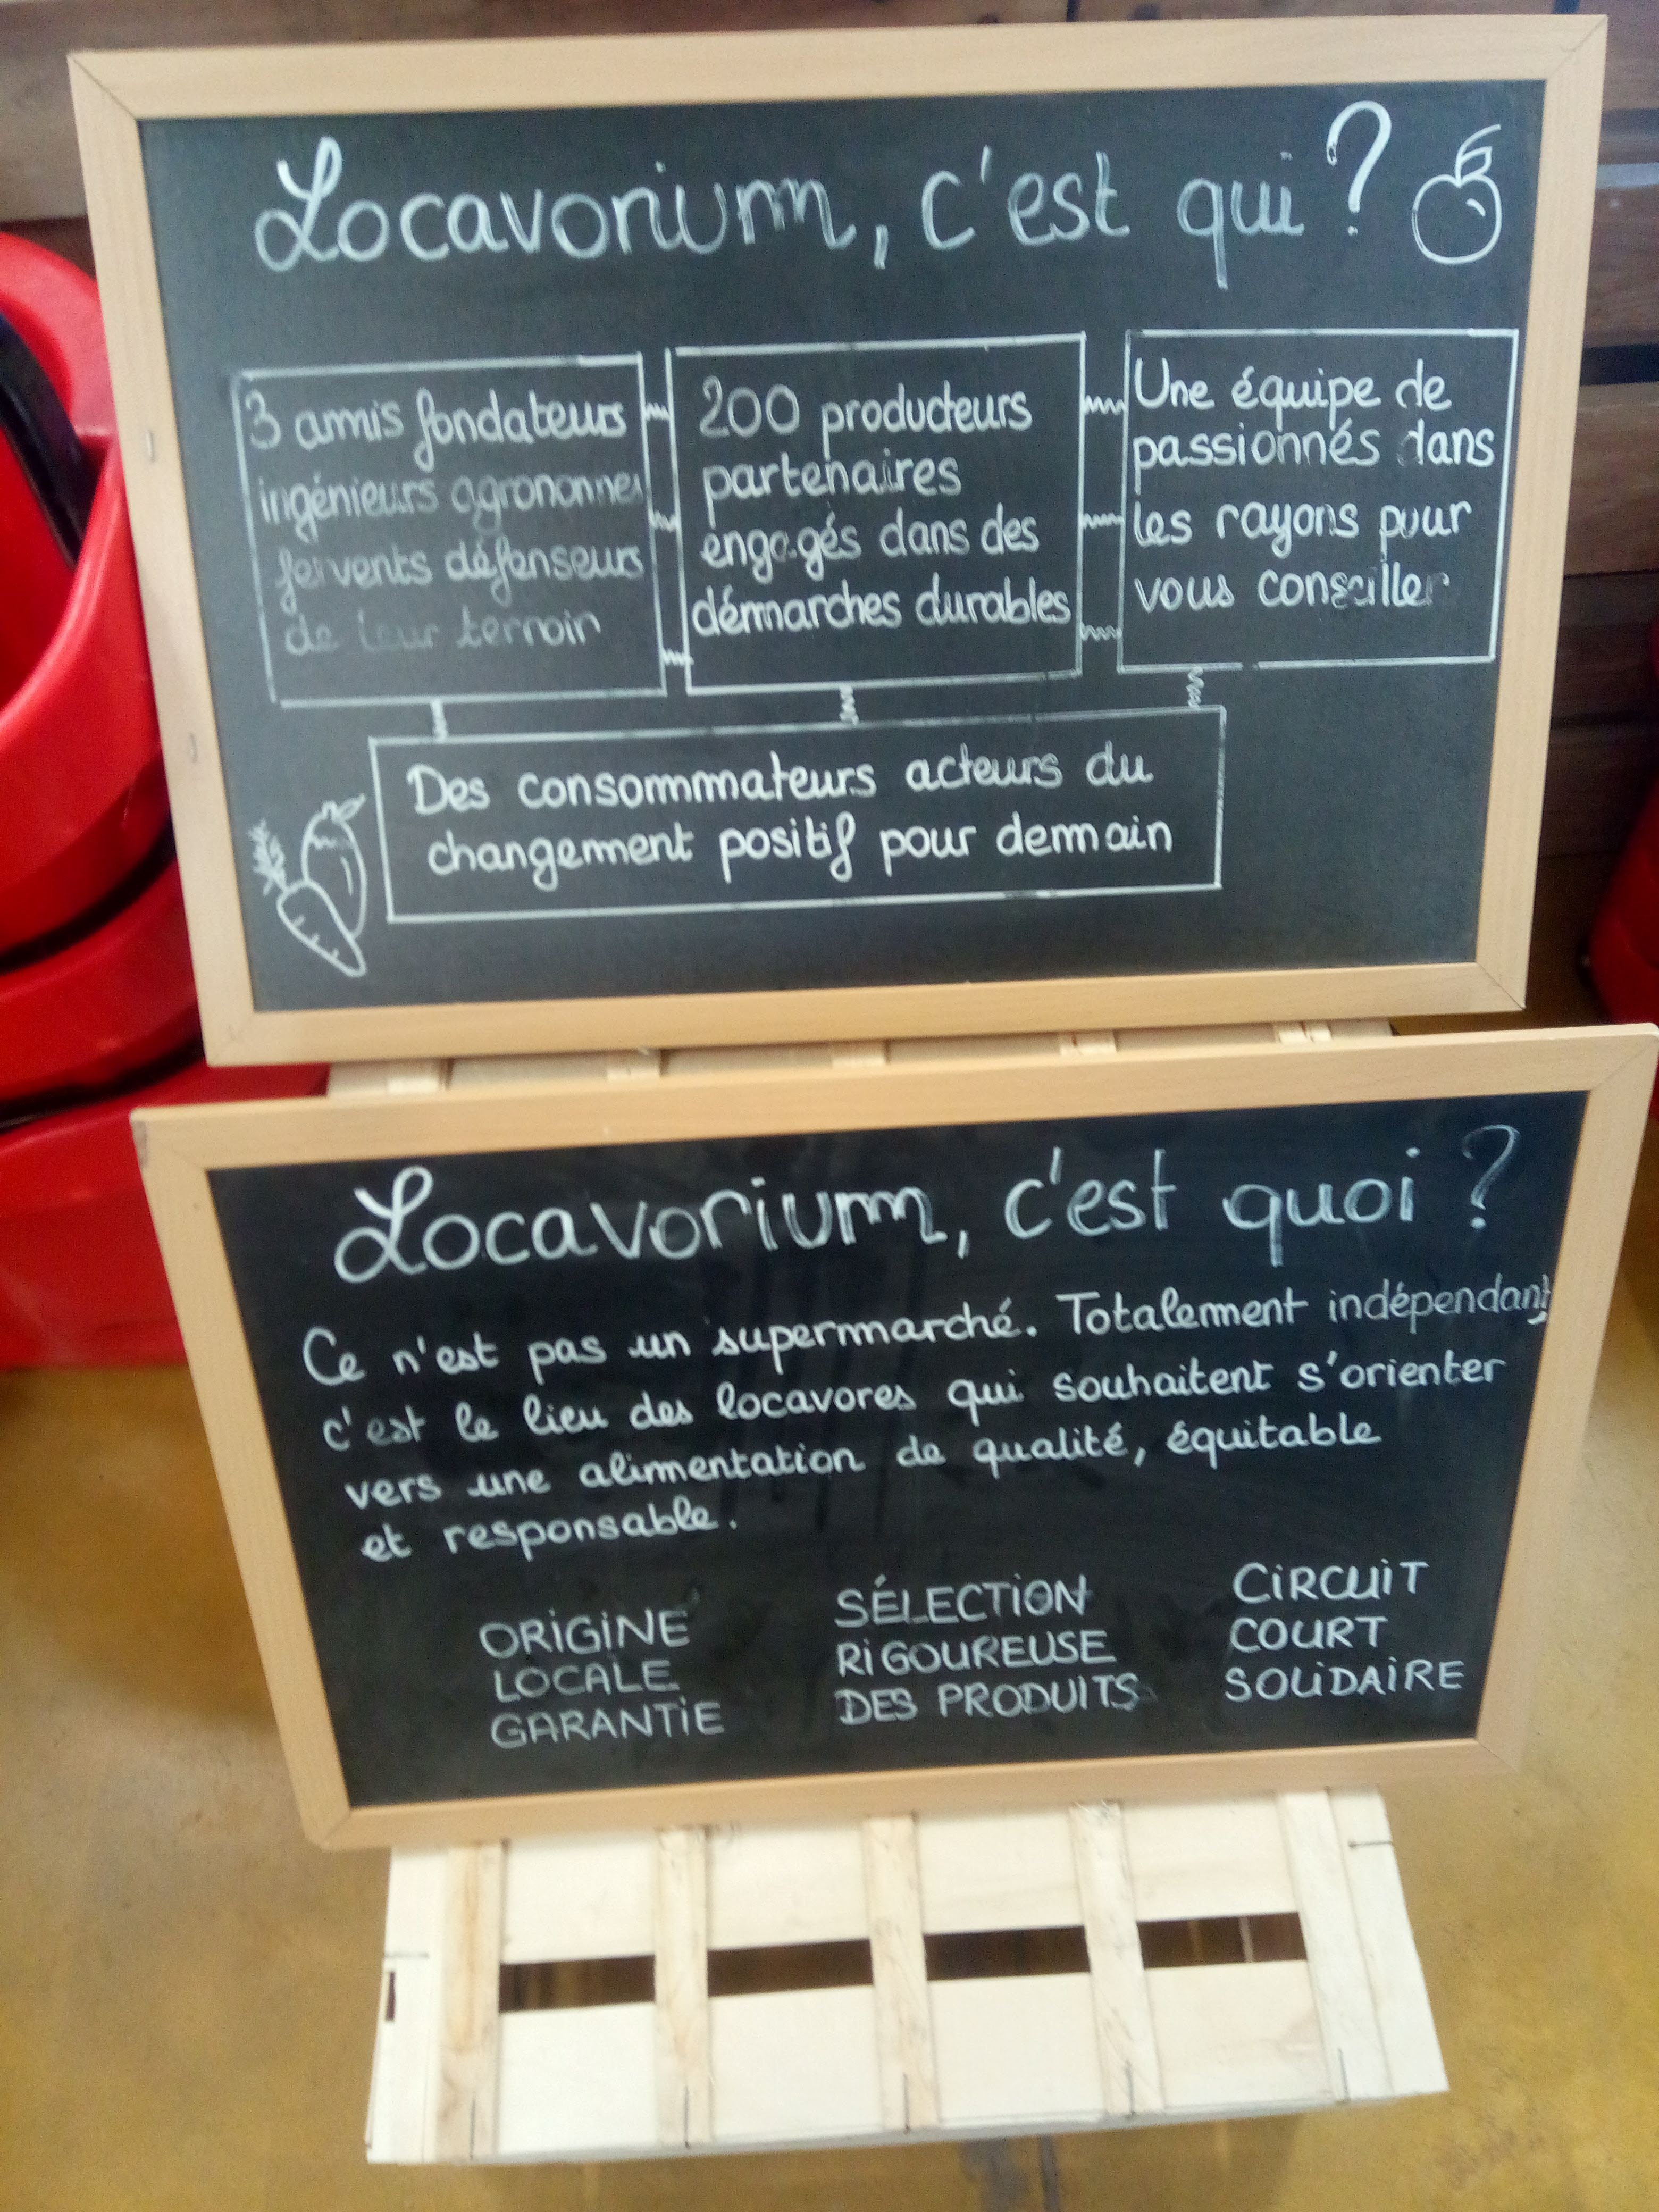 Locavorium, c'est qui ?
3 amis fondateurs
ingénieurs agronomes
fervents défenseurs
de leur terroir
200 producteurs
partenaires
engagés dans des
démarches durables
Une équipe de
passionnés dans
les rayons pour
vous conseiller
Des consommateurs acteurs du
changement positif pour demain
Locavorium, c'est quoi ?
Ce n'est pas un supermarché. Totalement indépendant,
c'est le lieu des locavores qui souhaitent s'orienter
vers une alimentation de qualité, équitable
et responsable.
ORIGINE
LOCALE
GARANTIE
SÉLECTION
RIGOUREUSE
DES PRODUITS
CIRCUIT
COURT
SOLIDAIRE